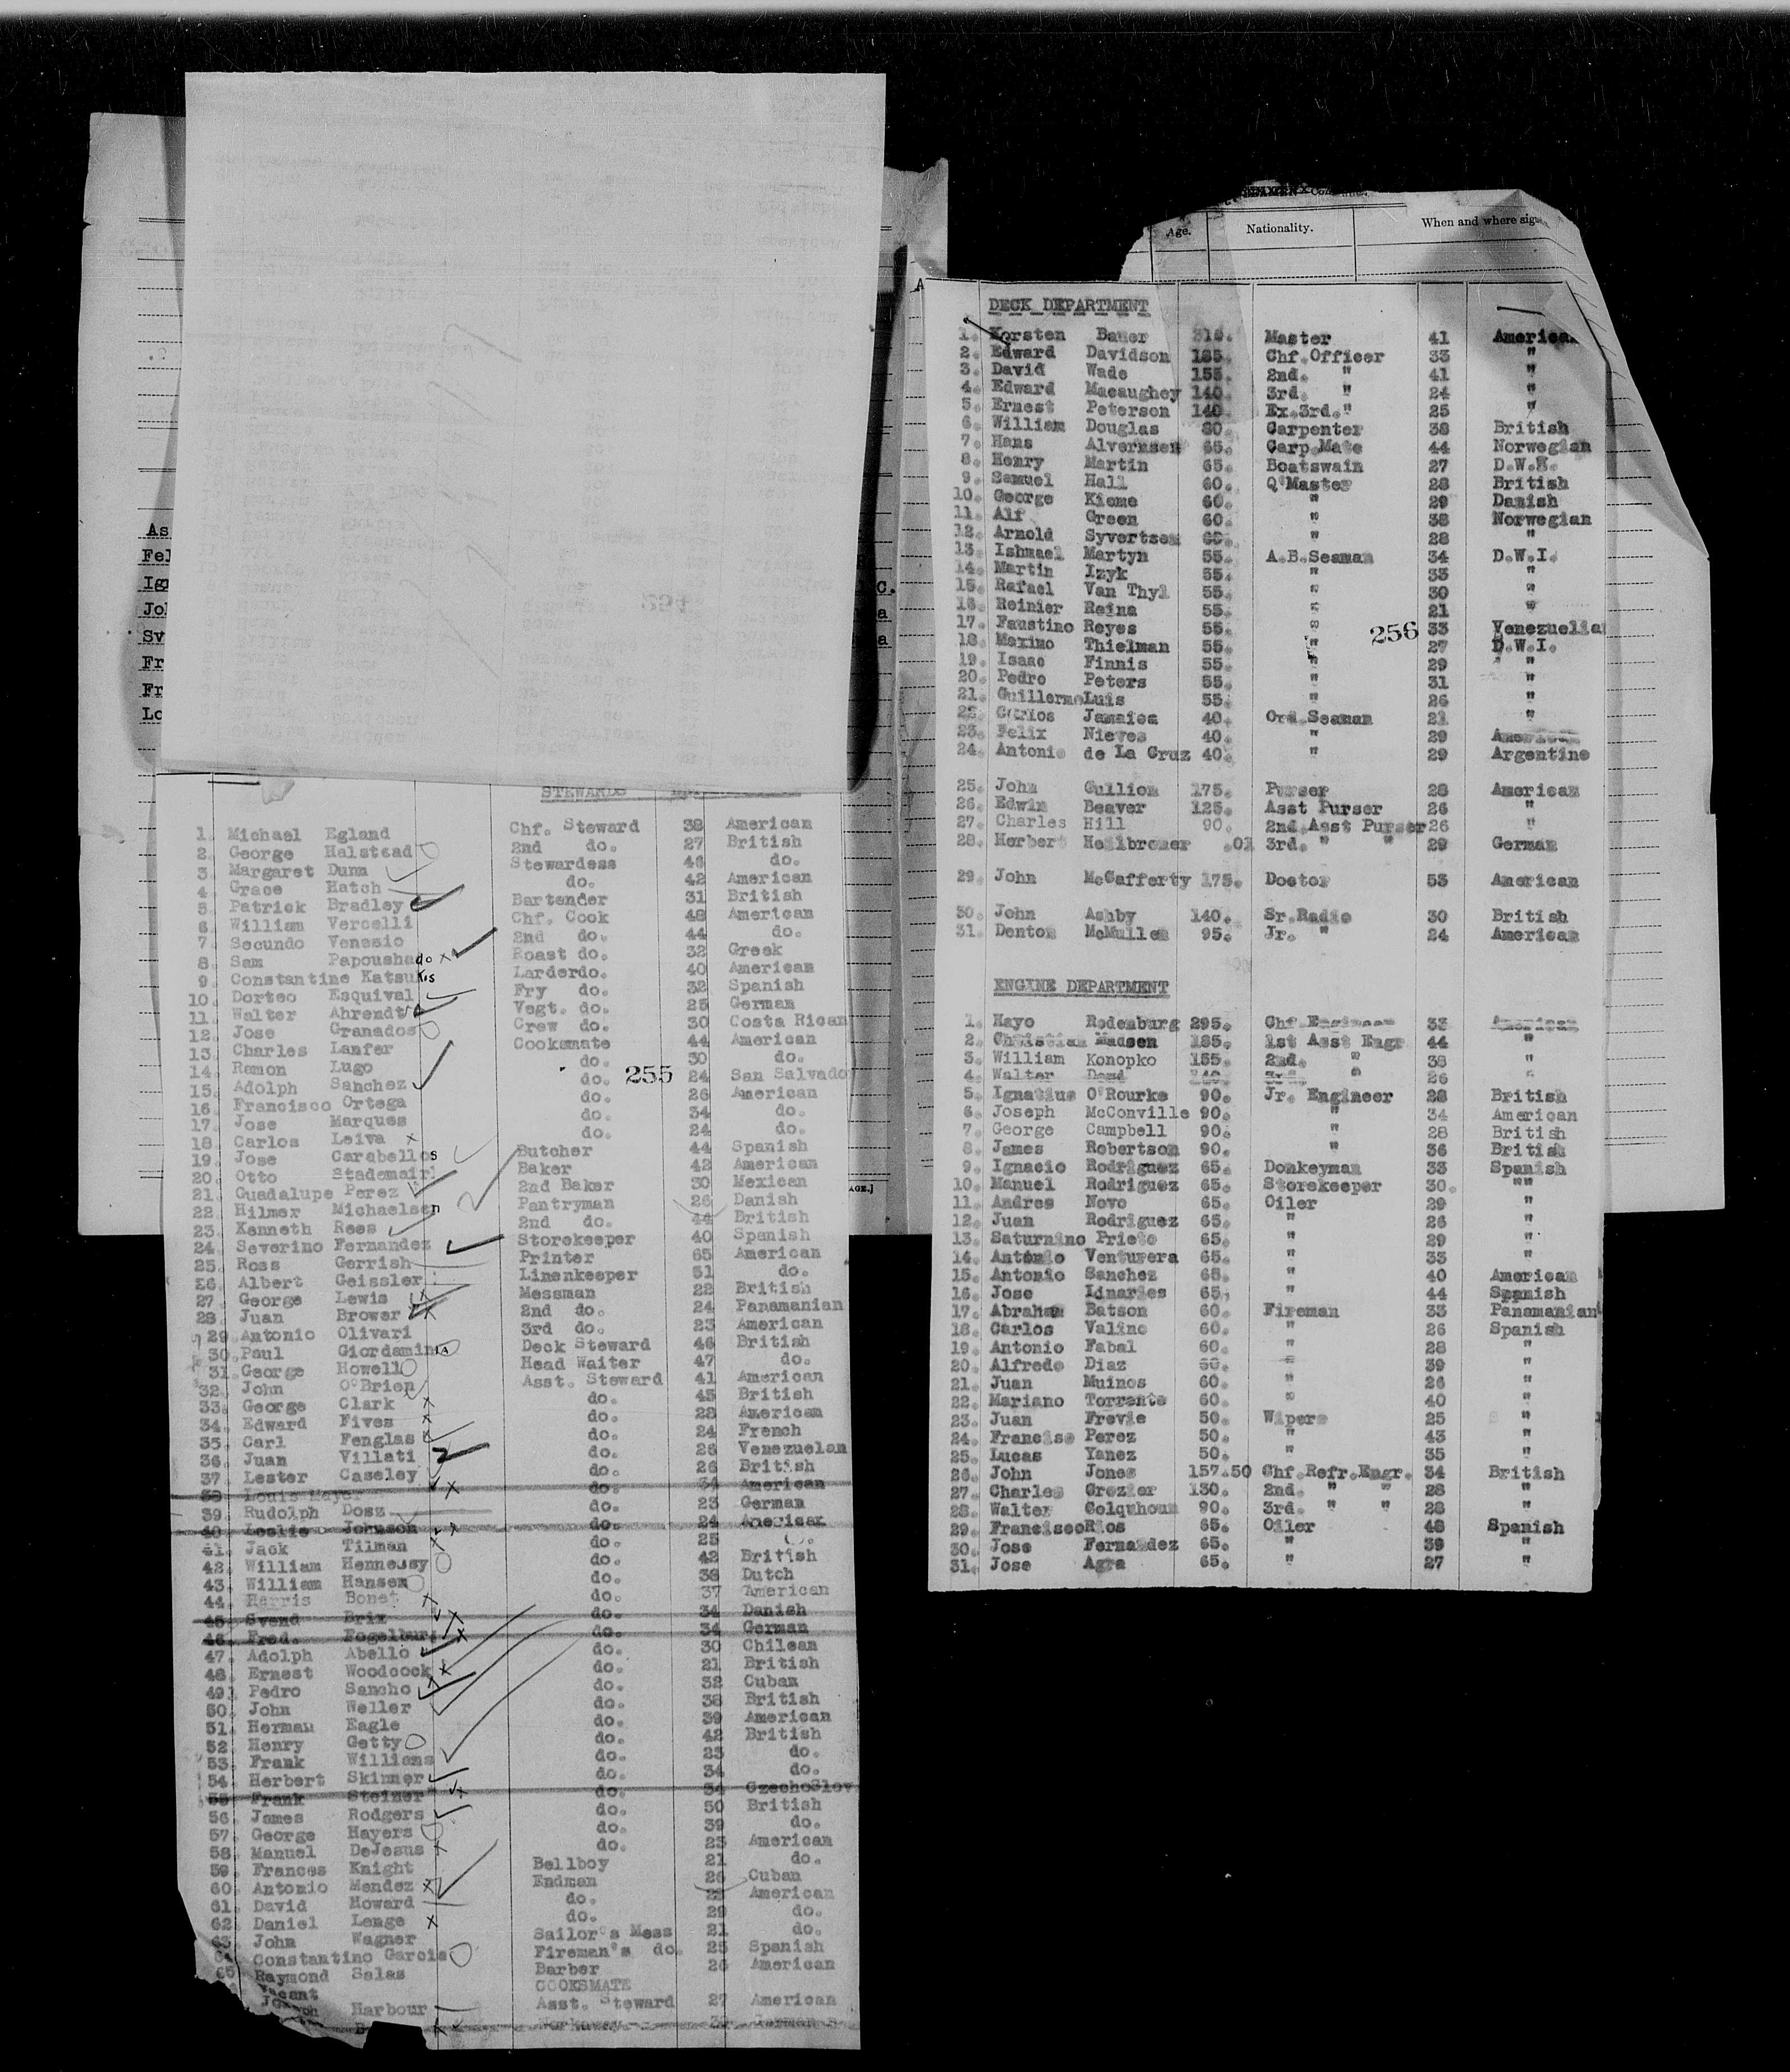 As
Fel
Ign
Joh
Sv
Fr
Fr
Lo
C.
a
a
AGE.]
STEWARDS
1. Michael Egland Chf. Steward 38 American
2. George Halstead 2nd do. 27 British
3. Margaret Dunn Stewardess 46 do.
4. Grace Hatch do. 42 American
5. Patrick Bradley Bartender 31 British
6. William Vercelli Chf. Cook 48 American
7. Secundo Venesio 2nd do. 44 do.
8. Sam Papoushado x Roast do. 32 Greek
9. Constantine Katsukis Larderdo. 40 American
10. Dorteo Esquival Fry do. 32 Spanish
11. Walter Ahrendt Vegt. do. 25 German
12. Jose Granados Crew do. 30 Costa Rican
13. Charles Lanfer Cooksmate 44 American
14. Ramon Lugo do. 30 do.
15. Adolph Sanchez do. 24 San Salvado
255
16. Francisco Ortega do. 26 American
17. Jose Marques do. 34 do.
18. Carlos Leiva x do. 24 do.
19. Jose Carabellos Butcher 44 Spanish
20. Otto Stademairl Baker 42 American
21. Guadalupe Perez 2nd Baker 30 Mexican
22. Hilmer Michaelsen Pantryman 26 Danish
23. Kenneth Rees 2nd do. 44 British
24. Severino Fernandez Storekeeper 40 Spanish
25. Ross Gerrish Printer 65 American
26. Albert Geissler Linenkeeper 51 do.
27. George Lewis Messman 22 British
28. Juan Brower 2nd do. 24 Panamanian
29. Antonio Olivari 3rd do. 23 American
30. Paul Giordamin Deck Steward 46 British
31. George Howell Head Waiter 47 do.
32. John O'Brien Asst. Steward 41 American
33. George Clark x do. 45 British
34. Edward Fives x do. 28 American
35. Carl Fenglas do. 24 French
36. Juan Villati do. 25 Venezuelan
37. Lester Caseley do. 26 British
38. Louis Mayer x do. 34 American
39. Rudolph Dosz do. 23 German
40. Leslie Johnson do. 24 American
41. Jack Tilman x do. 25
42. William Hennessy do. 42 British
43. William Hansen do. 38 Dutch
44. Harris Bonet x do. 37 American
45. Svend Brix x do. 34 Danish
46. Fred. Fogelburg x do. 34 German
47. Adolph Abello do. 30 Chilean
48. Ernest Woodcock x do. 21 British
49. Pedro Sancho x do. 32 Cuban
50. John Weller do. 38 British
51. Herman Eagle do. 39 American
52. Henry Getty do. 42 British
53. Frank Williams do. 23 do.
54. Herbert Skinner do. 34 do.
55. Frank Steiner x do. 34 CzechoSlov
56. James Rodgers do. 50 British
57. George Hayers do. 39 do.
58. Manuel DeJesus x do. 23 American
59. Frances Knight Bellboy 21 do.
60. Antonio Mendez x Endman 26 Cuban
61. David Howard do. 22 American
62. Daniel Lenge x do. 29 do.
63. John Wagner Sailor's Mess 21 do.
64. Constantino Garcia Fireman's do. 25 Spanish
65 Raymond Salas Barber 26 American
Vacant COOKSMATE
Joseph Harbour Asst. Steward 27 American
B Workaway German
SEAMEN
Age. Nationality. When and where sig
DECK DEPARTMENT
1. Korsten Bauer 310. Master 41 American
2. Edward Davidson 185. Chf.Officer 33 "
3. David Wade 155. 2nd. " 41 "
4. Edward Macaughey 140. 3rd. " 24 "
5. Ernest Peterson 140. Ex.3rd." 25 "
6. William Douglas 80. Carpenter 38 British
7. Hans Alvernsen 65. Carp.Mate 44 Norwegian
8. Henry Martin 65. Boatswain 27 D.W.I.
9. Samuel Hall 60. Q'Master 28 British
10. George Kieme 60. " 29 Danish
11. Alf Green 60. " 38 Norwegian
12. Arnold Syvertsen 60. " 28 "
13. Ishmael Martyn 55. A.B.Seaman 34 D.W.I.
14. Martin Izyk 55. " 33 "
15. Rafael Van Thyl 55. " 30 "
16. Reinier Reina 55. " 21 "
17. Faustino Reyes 55. " 33 Venezuelia
256
18. Maximo Thielman 55. " 27 D.W.I.
19. Isaac Finnis 55. " 29 "
20. Pedro Peters 55. " 31 "
21. GuillermoLuis 55. " 26 "
22. Carlos Jamaica 40. Ord.Seaman 21 "
23. Felix Nieves 40. " 29 American
24. Antonio de La Cruz 40. " 29 Argentine
25. John Gullion 175. Purser 28 American
26. Edwin Beaver 125. Asst Purser 26 "
27. Charles Hill 90. 2nd.Asst Purser 26 "
28. Herbert Heilbroner .01 3rd. " " 29 German
29. John McCafferty 175. Doctor 53 American
30. John Ashby 140. Sr.Radio 30 British
31. Denton McMullen 95. Jr. " 24 American
ENGINE DEPARTMENT
1. Hayo Rodenburg 295. Chf.Engineer 33 American
2. Christian Madsen 185. 1st Asst Engr. 44 "
3. William Konopko 155. 2nd. " 38 "
4. Walter 140. 3rd. " 26 "
5. Ignatius O'Rourke 90. Jr. Engineer 28 British
6. Joseph McConville 90. " 34 American
7. George Campbell 90. " 28 British
8. James Robertson 90. " 36 British
9. Ignacio Rodriguez 65. Donkeyman 33 Spanish
10. Manuel Rodriguez 65. Storekeeper 30. ""
11. Andres Novo 65. Oiler 29 "
12. Juan Rodriguez 65. " 26 "
13. Saturnino Prieto 65. " 29 "
14. Antonio Venturera 65. " 33 "
15. Antonio Sanchez 65. " 40 American
16. Jose Linaries 65. " 44 Spanish
17. Abraham Batson 60. Fireman 33 Panamanian
18. Carlos Valino 60. " 26 Spanish
19. Antonio Fabal 60. " 28 "
20. Alfredo Diaz 60. " 39 "
21. Juan Muinos 60. " 26 "
22. Mariano Torrente 60. " 40 "
23. Juan Frevie 50. Wipers 25 "
24. Francisc Perez 50. " 43 "
25. Lucas Yanez 50. " 35 "
26. John Jones 157.50 Chf.Refr.Engr. 34 British
27. Charles Crozier 130. 2nd. " " 28 "
28. Walter Colquhoun 90. 3rd. " " 28 "
29. FranciscoRios 65. Oiler 48 Spanish
30. Jose Fernandez 65. " 39 "
31. Jose Agra 65. " 27 "